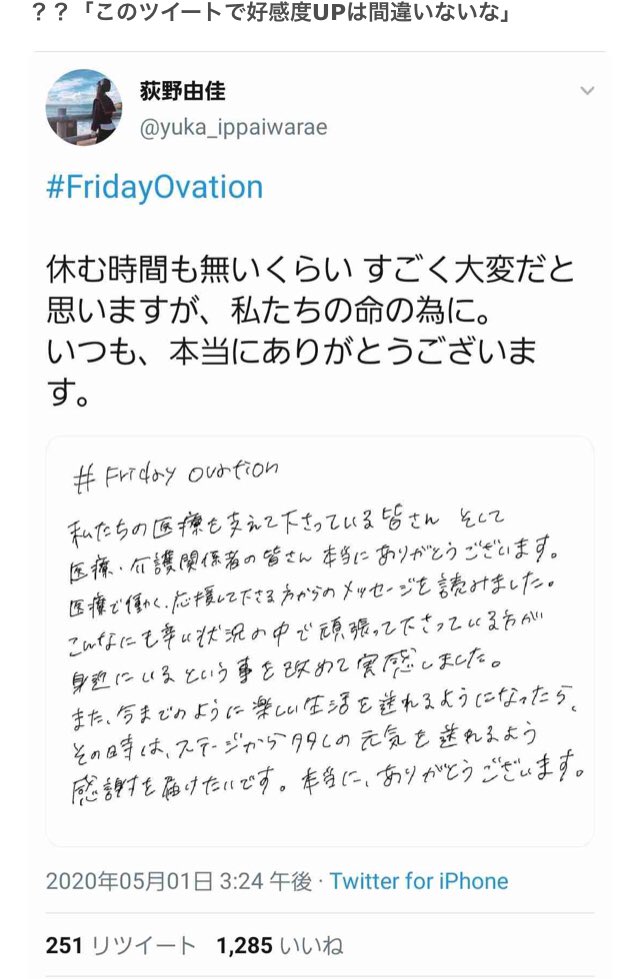 ？？「このツイートで好感度UPは間違いないな」
荻野由佳
@yuka_ippaiwarae
#FridayOvation
休む時間も無いくらい すごく大変だと
思いますが、私たちの命の為に。
いつも、本当にありがとうございま
す。
# Friday Ovation
私たちの医療を支えて下さっている皆さん そして
医療・介護関係者の皆さん 本当にありがとうございます。
医療で働く、応援して下さる方からのメッセージを読みました。
こんなにも辛い状況の中で頑張って下さっている方が
身近にいるという事を改めて実感しました。
また、今までのように楽しい生活を送れるようになったら、
その時は、ステージから 少しの元気を送れるよう
感謝を届けたいです。本当に、ありがとうございます。
2020年05月01日 3:24 午後 · Twitter for iPhone
251 リツイート 1,285 いいね